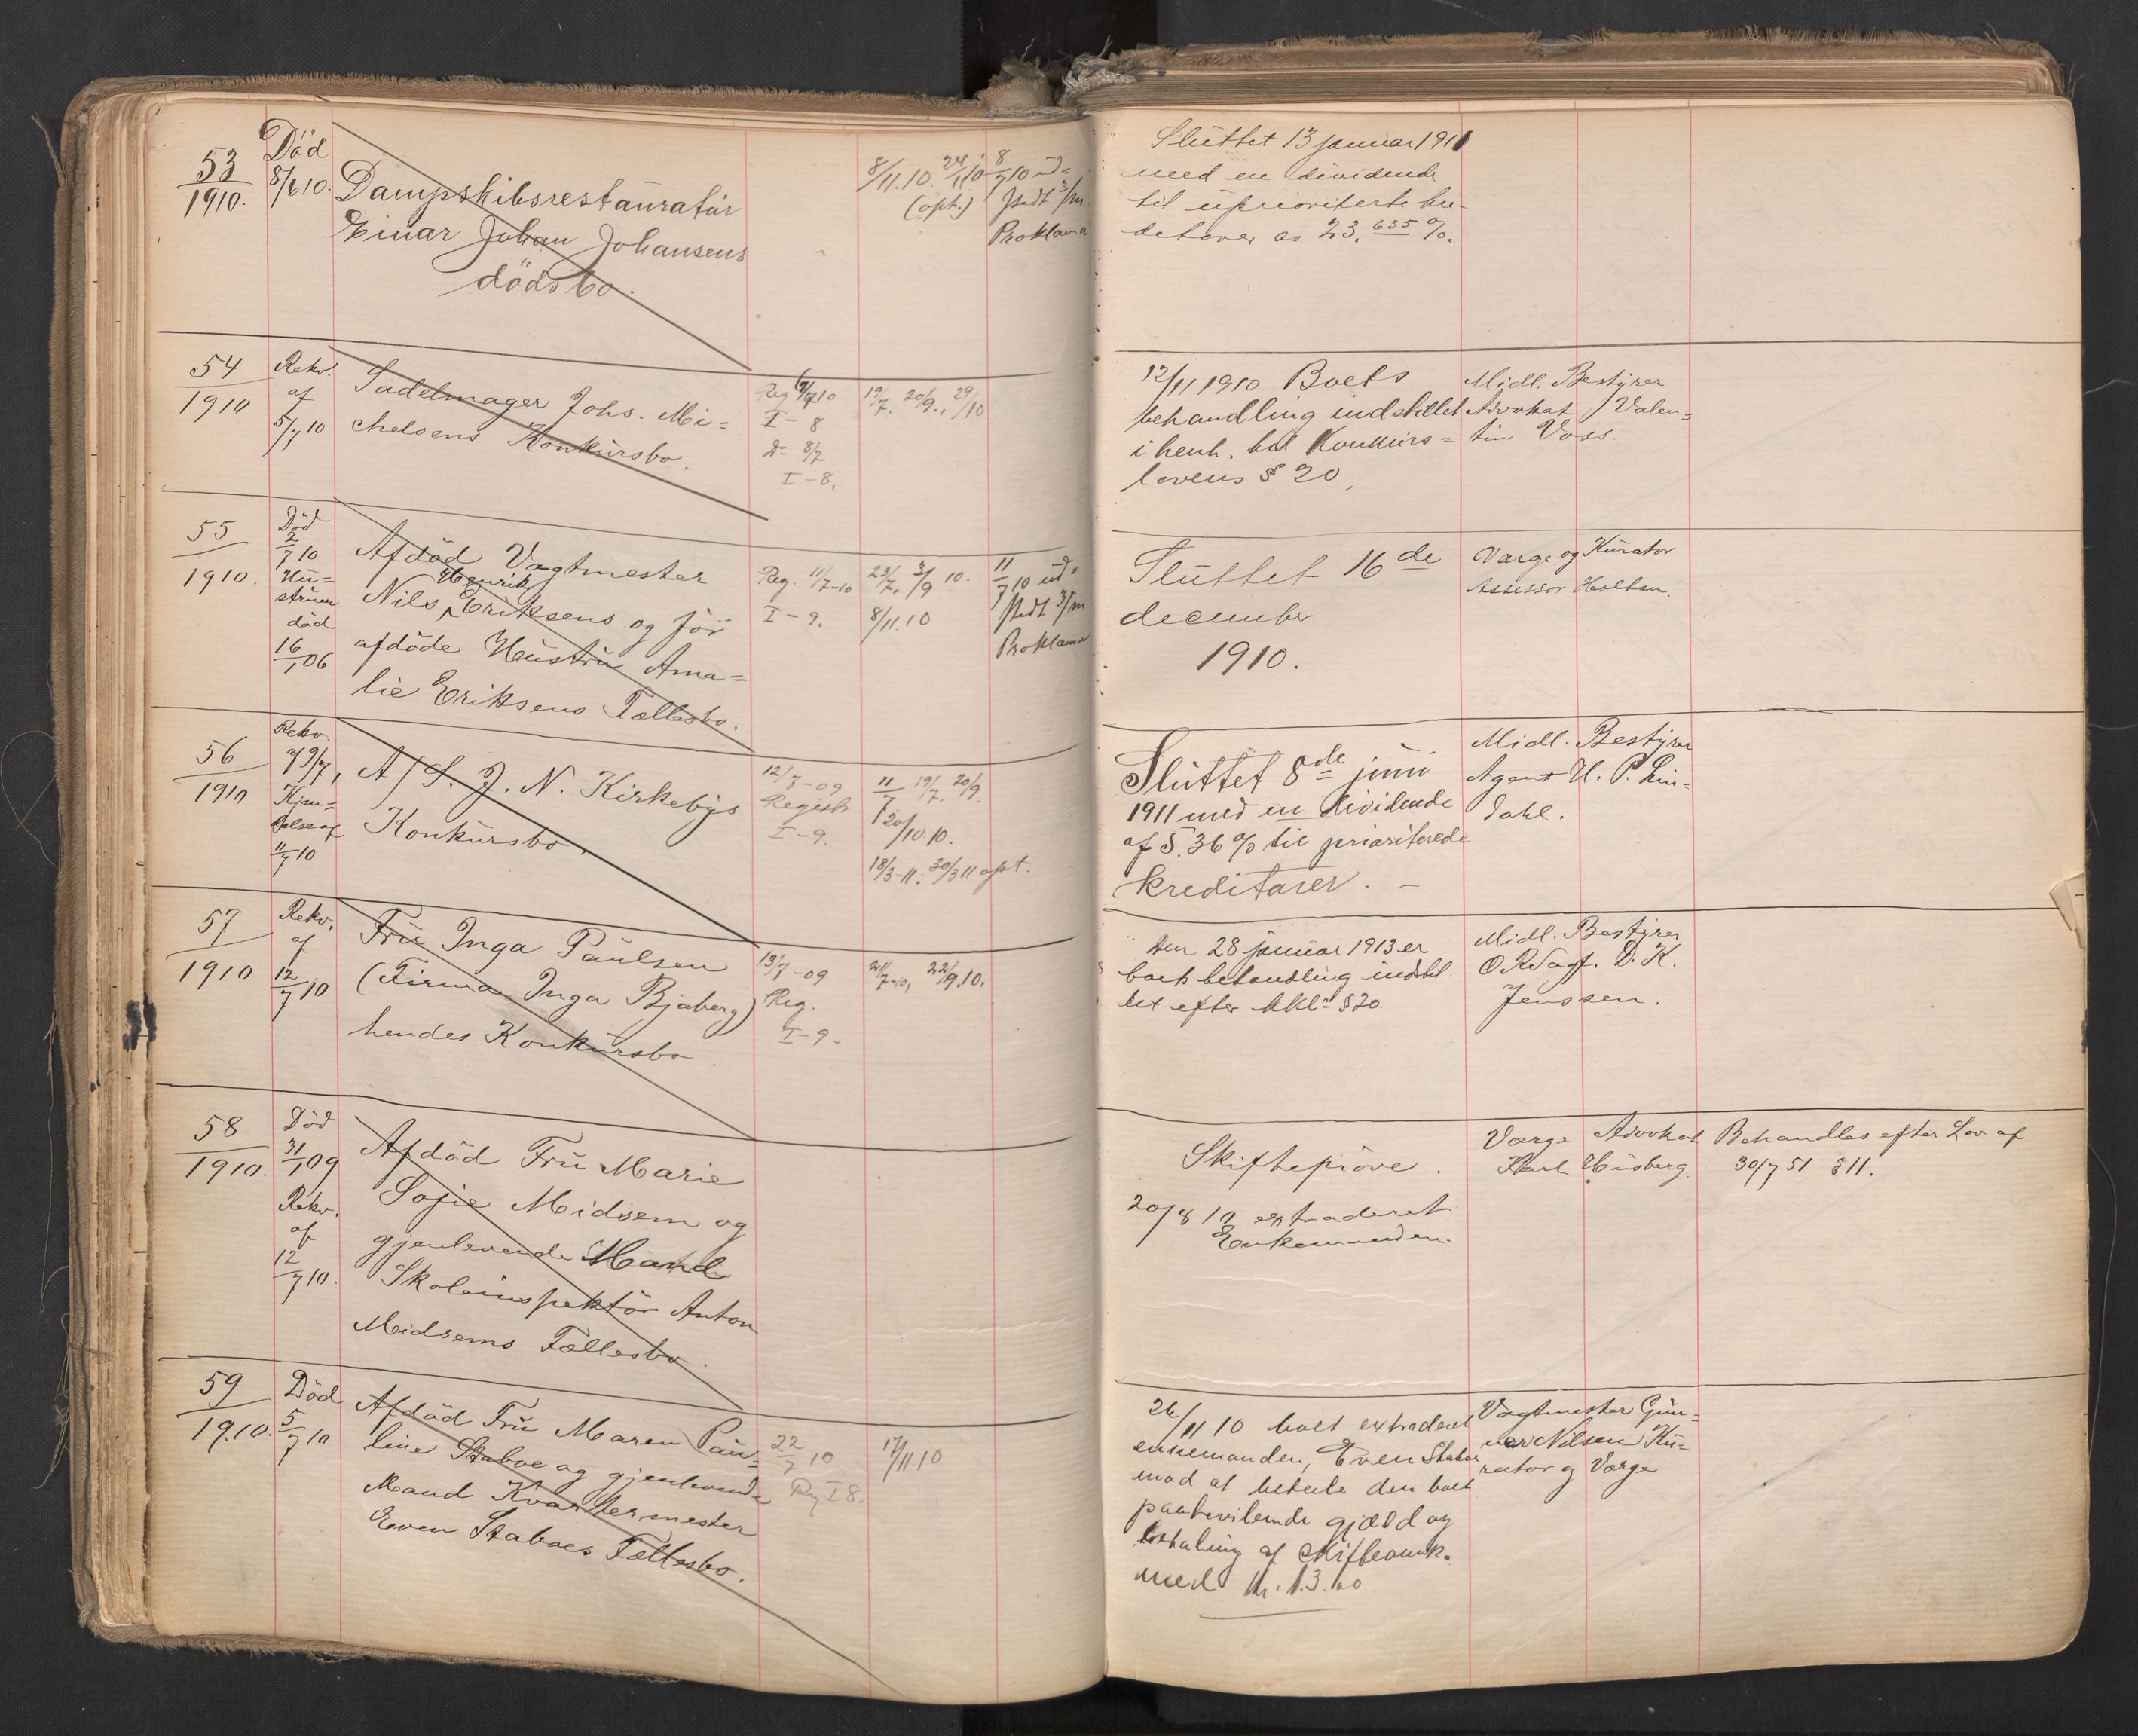 53
1910.
Död
8/6 10.
Dampskibsrestauratör
Einar Johan Johansens
dödsbo.
8/11.10. 24/11 10
(oph.)
8/7 10 ud=
stedt 3/m.
Proklama
Sluttet 13 januar 1911
med en dividende
til uprioriterte kre-
ditorer av 23.635 %.
54
1910
Rekv.
af
5/7 10
Sadelmager Johs. Mi=
chelsens Konkursbo.
Reg 6/7 10
I - 8
D= 8/7
I - 8,
19/7. 20/9., 29/10
12/11 1910 Boets
behandling indstillet
i henh. til Konkurs=
lovens § 20,
Midl. Bestyrer
Advokat Valen=
tin Voss.
55
1910.
Död
2/7 10
Hu=
struen
död
16/1 06
Afdöd Vagtmester
Henrik
Nils Eriksens og för
afdöde Hustru Ama=
lie Eriksens Fællesbo.
Reg. 11/7-10
I - 9.
23/7, 3/9 10.
8/11.10
11/7 10 ud=
stedt 3/m
Proklama
Sluttet 16de
december
1910.
Værge og Kurator
Assessor Holtan.
56
1910
Rekv.
af 9/7,
Kjen=
delse af
11/7 10
A/S. J. N. Kirkebys
Konkursbo.
12/7-09
Registr.
I - 9.
11/7 19/7. 20/9.
20/10 10.
18/3-11. 30/3 11 opt.
Sluttet 8de juni
1911 med en dividende
af 5.36 % til prioriterede
kreditorer. -
Midl. Bestyrer
Agent H. P. Lin=
dahl.
57
1910
Rekv.
af
12/7 10
Fru Inga Paulsen
(Firma Inga Bjaberg)
hendes Konkursbo
13/7-09
Reg.
I - 9 -
21/7-10, 22/9.10.
Den 28 januar 1913 er
boets behandling indstil-
let efter kkl= § 20.
Midl. Bestyrer
O.R.Sagf. D. K.
Jenssen.
58
1910.
Död
31/1 09
Rekv.
af
12/7 10.
Afdöd Fru Marie
Sofie Midsem og
gjenlevende Mand
Skoleinspektör Anton
Midsems Fællesbo.
Skifteprøve.
20/8 12 extraderet
Enkemanden.
Værge Advokat
Karl Husberg.
Behandles efter Lov af
30/7 51 § 11.
59
1910.
Död
5/7 10
Afdöd Fru Maren Pau=
line Staboe og gjenlevende
Mand Kvartermester
Even Staboes Fællesbo.
22/7 10
Reg I 8.
17/11.10
26/11 10 boet extraderet
enkemanden, Even Staboe
mod at betale den boet
paahvilende gjæld og
betaling af skifteomk.
med kr. 13.60
Vagtmester Gun=
nar Nilsen Ku=
rator og Værge